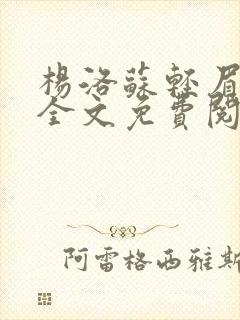 楊洛蘇輕眉
全文免費閱
阿雷格西雅斯